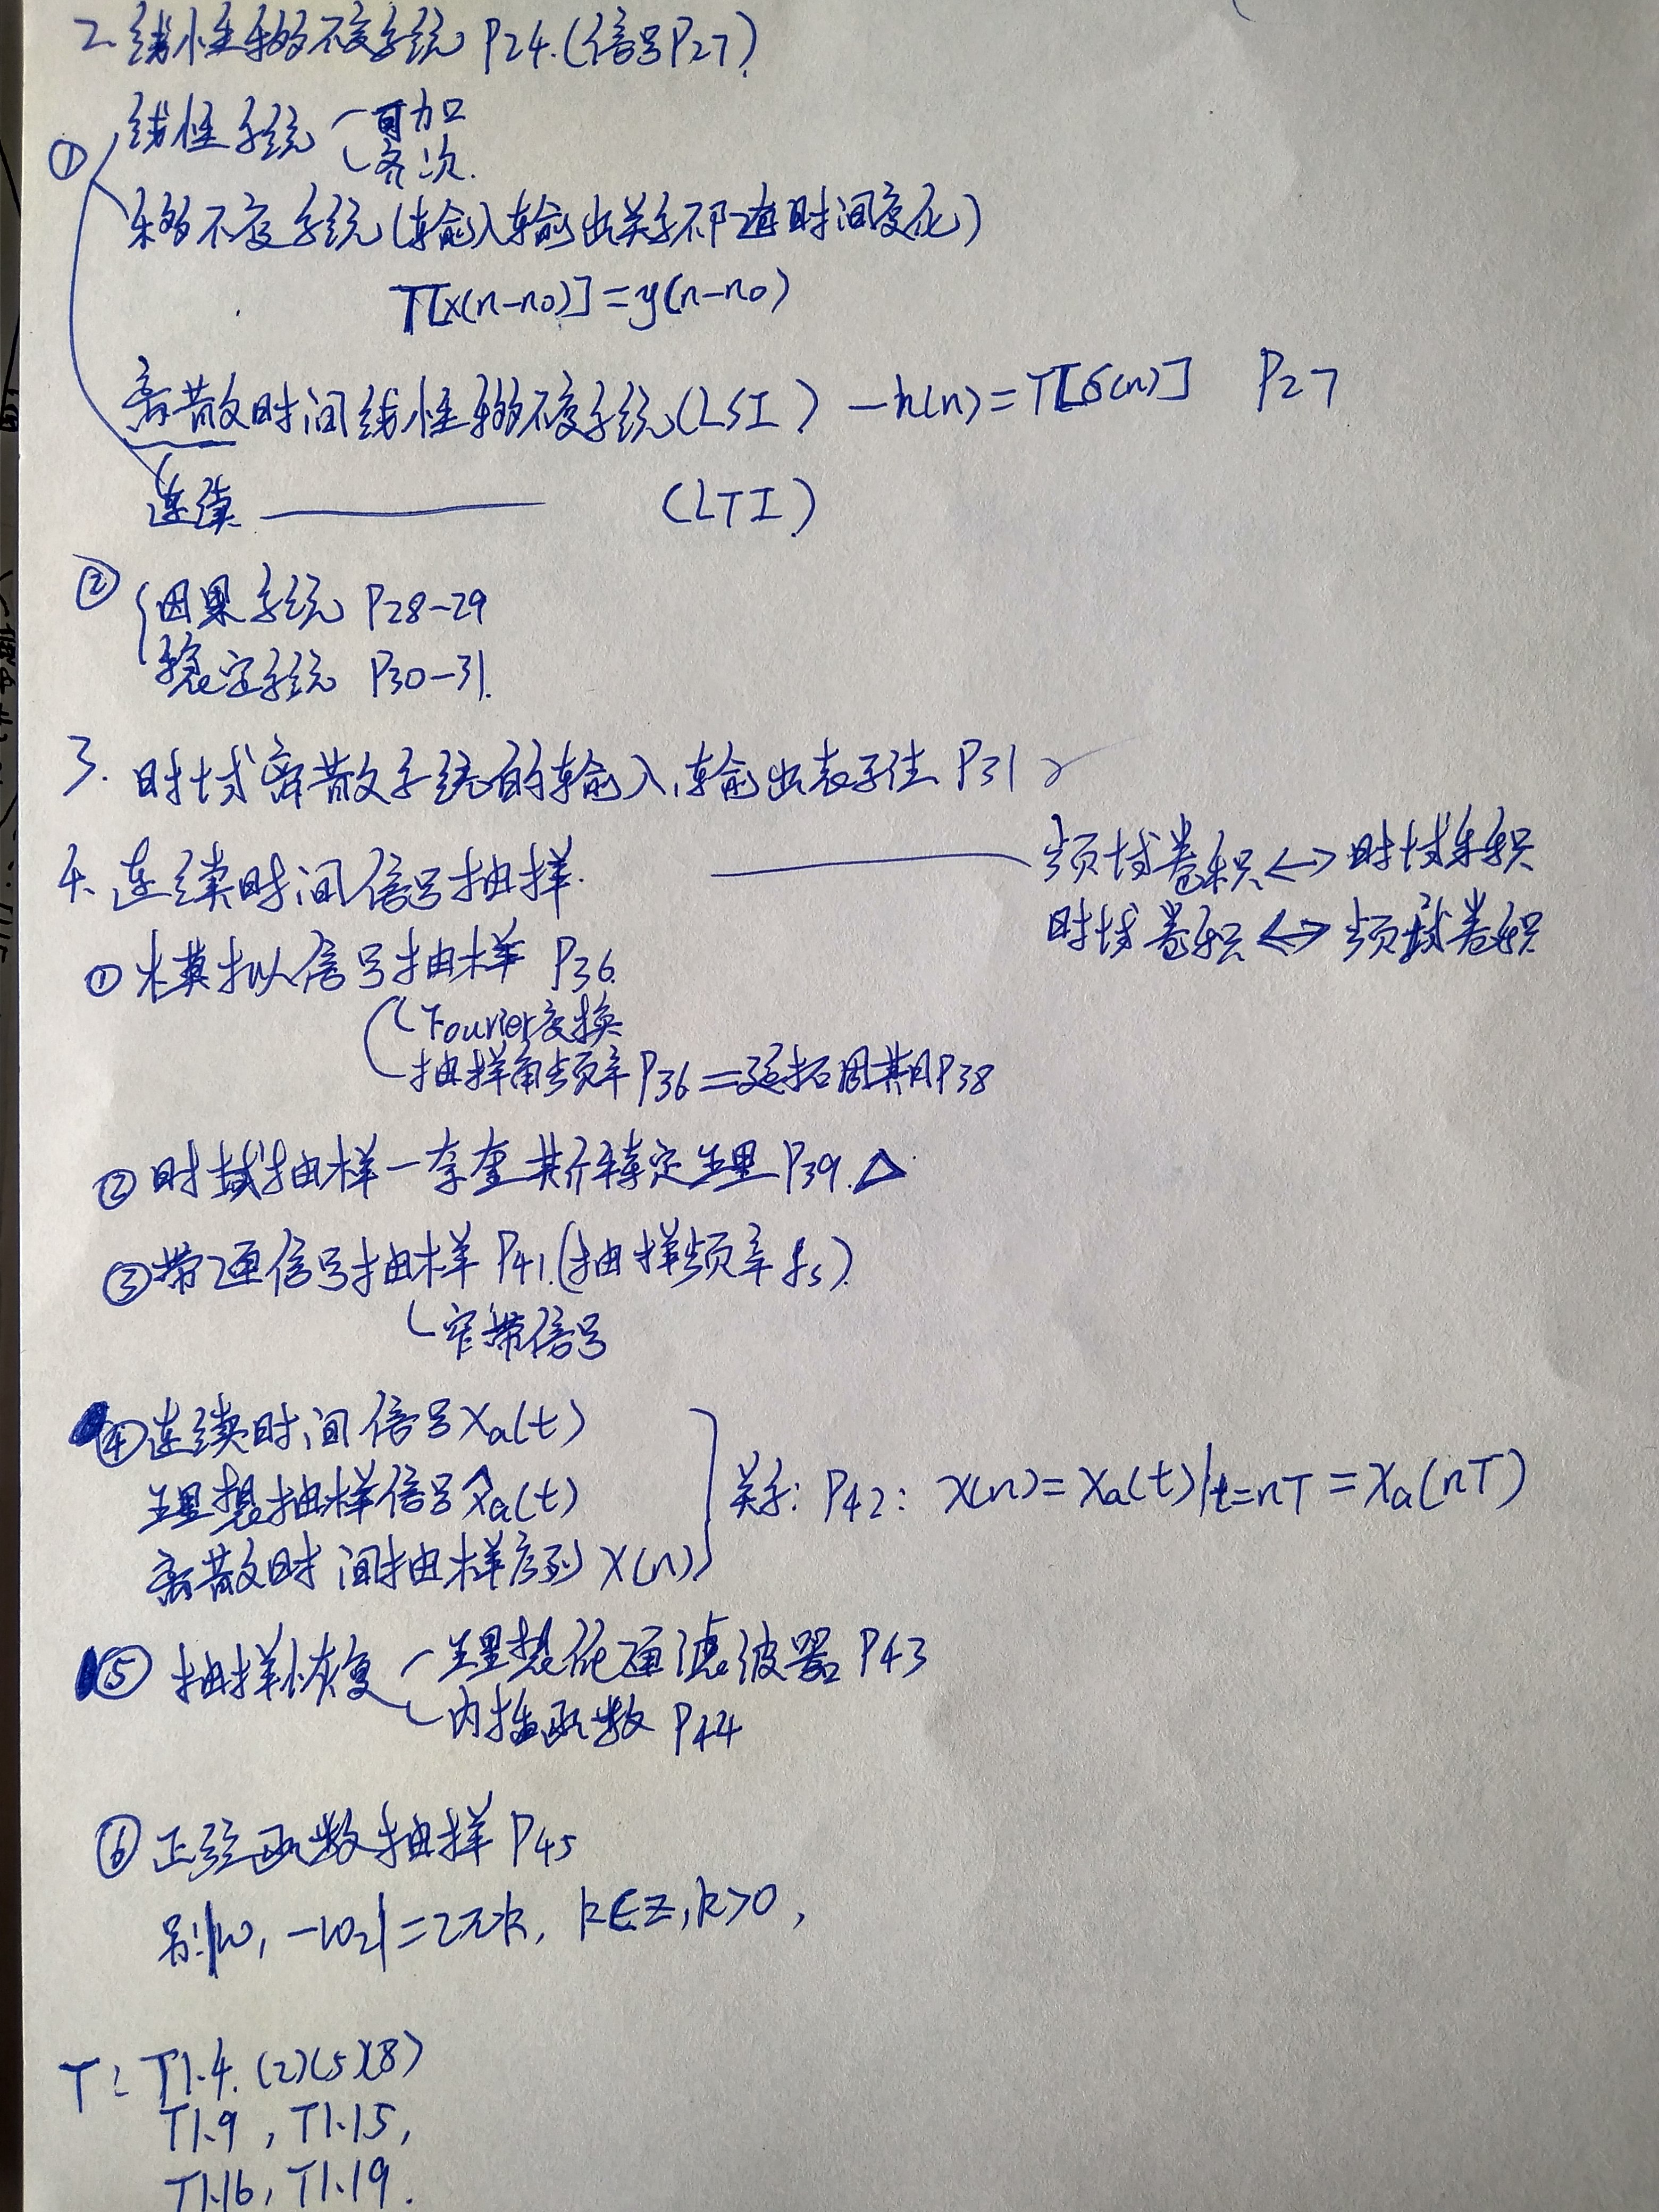 2. 线性移不变系统 P24.(信号P27)
① 线性系统 可加
齐次.
移不变系统(输入输出关系不随时间变化)
T[x(n-n0)]=y(n-n0)
离散时间线性移不变系统(LSI) —h(n)=T[δ(n)] P27
连续 ——— (LTI)
② 因果系统 P28-29
稳定系统 P30-31.
3. 时域离散系统的输入,输出表示法 P31
4. 连续时间信号抽样. ——— 频域卷积<->时域乘积
时域卷积<=>频域卷积
① 模拟信号抽样 P36.
Fourier变换
抽样角频率P36=延拓周期P38
② 时域抽样—奈奎斯特定理P39.△
③ 带通信号抽样 P41.(抽样频率fs).
窄带信号
④ 连续时间信号Xa(t)
理想抽样信号X̂a(t)
离散时间抽样序列 X(n)
关系: P42: x(n)=Xa(t)|t=nT=Xa(nT)
⑤ 抽样恢复 理想低通滤波器 P43
内插函数 P44
⑥ 正弦函数抽样 P45
|ω1-ω2|=2πk, k∈Z,k>0,
T: T1.4.(2)(5)(8)
T1.9, T1.15,
T1.16, T1.19.